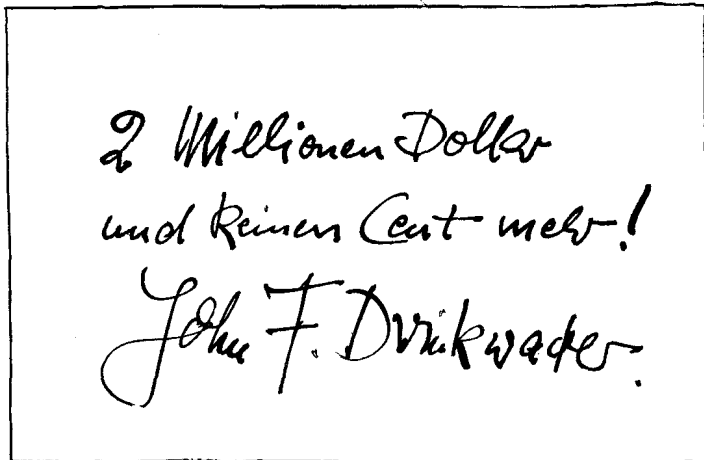 2 Millionen Dollar
und keinen Cent mehr!
John F. Drinkwader.